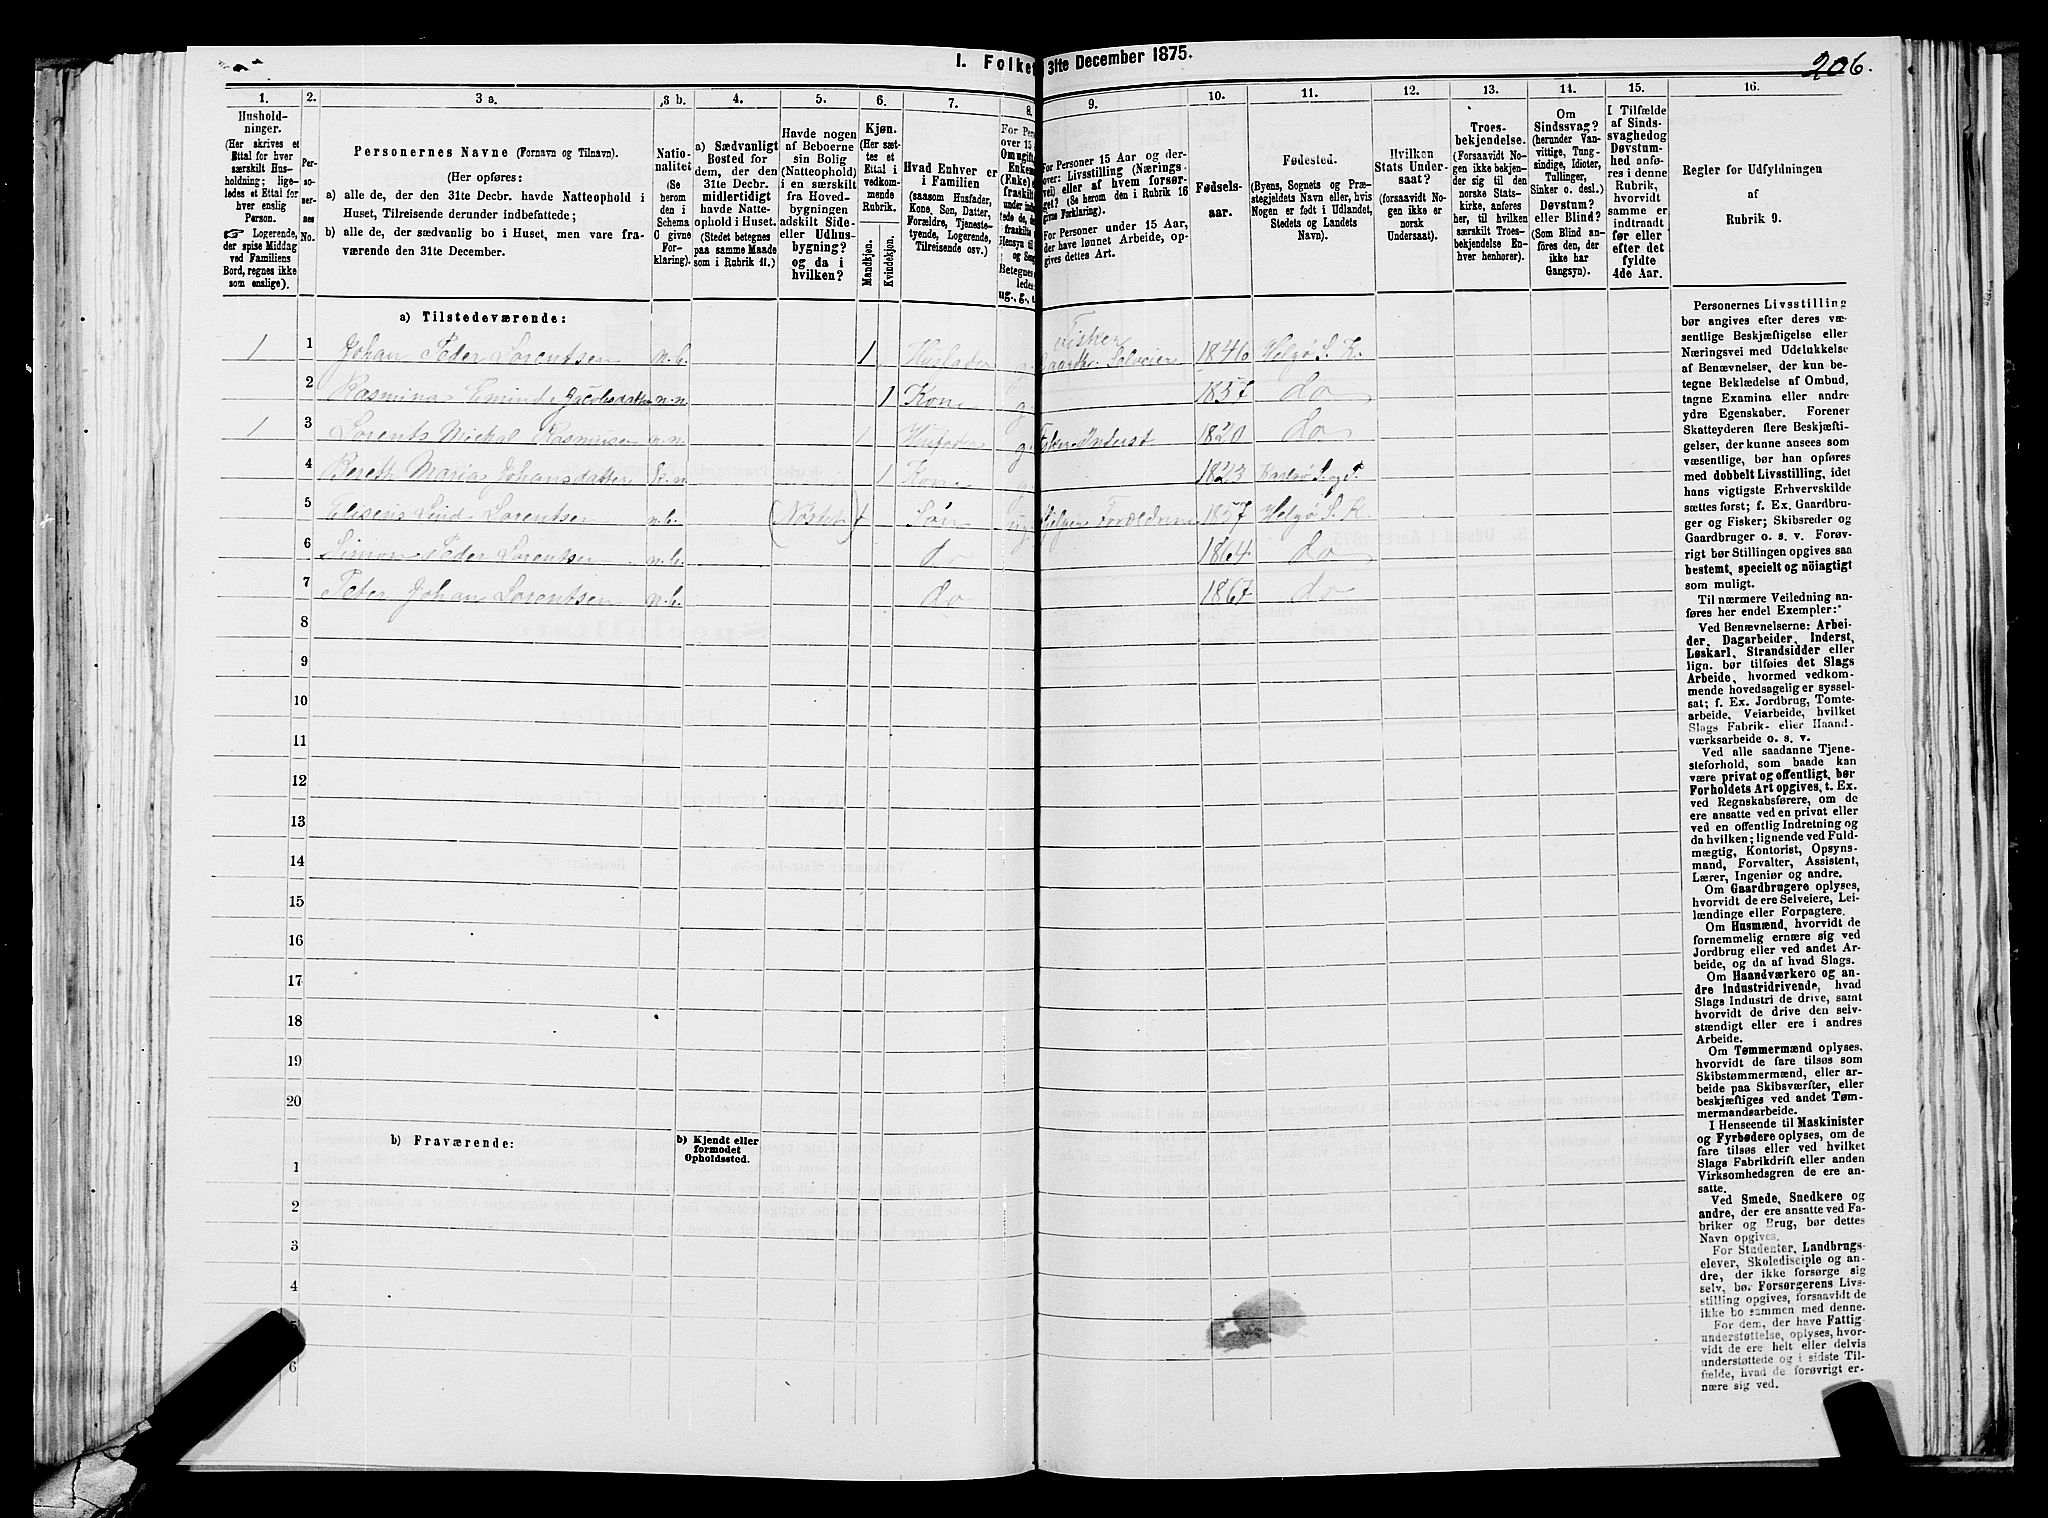 I. Folket
31te December 1875.
206.
1.
Hushold-
ninger.
(Her skrives et
Ettal for hver
særskilt Hus-
holdning; lige-
ledes et Ettal for
hver enslig
Person.
☞ Logerende,
der spise Middag
ved Familiens
Bord, regnes ikke
som enslige).
2.
Per-
so-
ner-
nes
No.
3 a.
Personernes Navne (Fornavn og Tilnavn).
(Her opføres:
a) alle de, der den 31te Decbr. havde Natteophold i
Huset, Tilreisende derunder indbefattede;
b) alle de, der sædvanlig bo i Huset, men vare fra-
værende den 31te December.
3 b.
Natio-
nalitet
(Se
herom
den i
Schema
O givne
For-
klaring).
4.
a) Sædvanligt
Bosted for
dem, der den
31te Decbr.
midlertidigt
havde Natte-
ophold i Huset.
(Stedet betegnes
paa samme Maade
som i Rubrik 11.)
5.
Havde nogen
af Beboerne
sin Bolig
(Natteophold)
i en særskilt
fra Hoved-
bygningen
adskilt Side-
eller Udhus-
bygning?
og da i
hvilken?
6.
Kjøn.
(Her sæt-
tes et
Ettal i
vedkom-
mende
Rubrik.
Mandkjøn.
Kvindekjøn.
7.
Hvad Enhver er
i Familien
(saasom Husfader,
Kone, Søn, Datter,
Forældre, Tjeneste-
tyende, Logerende,
Tilreisende osv.)
8.
9.
For Personer 15 Aar og der-
over: Livsstilling (Nærings-
vei) eller af hvem forsør-
get? (Se herom den i Rubrik 16
givne Forklaring).
For Personer under 15 Aar,
der have lønnet Arbeide, op-
gives dettes Art.
10.
Fødsels-
aar.
11.
Fødested.
(Byens, Sognets og Præ-
stegjeldets Navn eller, hvis
Nogen er født i Udlandet,
Stedets og Landets
Navn).
12.
Hvilken
Stats Under-
saat?
(forsaavidt No-
gen ikke er
norsk
Undersaat).
13.
Troes-
bekjendelse.
(Forsaavidt No-
gen ikke bekjen-
der sig til den
norske Stats-
kirke, anføres
her, til hvilken
særskilt Troes-
bekjendelse En-
hver henhører).
14.
Om
Sindssvag?
(herunder Van-
vittige, Tung-
sindige, Idioter,
Tullinger,
Sinker o. desl.)
Døvstum?
eller Blind?
(Som Blind an-
føres den, der
ikke har
Gangsyn).
15.
I Tilfælde
af Sinds-
svaghed og
Døvstum-
hed anfø-
res i denne
Rubrik,
hvorvidt
samme er
indtraadt
før eller
efter det
fyldte
4de Aar.
16.
Regler for Udfyldningen
af
Rubrik 9.
a) Tilstedeværende:
1 1 Johan Peder Lorentsen n.b. 1 Husfader g. Fisker Gaardbr. Selveier 1846 Helgø S. K.
2 Rasmina Jacobsdatter n.n 1 Kone g. 1857 do
1 3 Lorents Mickal Rasmusen n.n. 1 Husfader g. Fisker Inderst 1820 do
4 Bereth Maria Johansdatter 1 Kone g. 1823 Karlsø S. og P.
5 Lorentsen n.b. (Nöstet) Søn ug. Hjelper Forældrene 1857 Helgø S. K.
6 Simon Peder Lorentsen n.b. do 1864 do
7 Peter Johan Lorentsen n.b. do 1867 do
8
9
10
11
12
13
14
15
16
17
18
19
20
b) Fraværende:
b) Kjendt eller
formodet
Opholdssted.
1
2
3
4
6
Personernes Livsstilling
bør angives efter deres væ-
sentlige Beskjæftigelse eller
Næringsvei med Udelukkelse
af Benævnelser, der kun be-
tegne Beklædelse af Ombud,
tagne Examina eller andre
ydre Egenskaber. Forener
Skatteyderen flere Beskjæfti-
gelser, der kunne ansees som
væsentlige, bør han opføres
med dobbelt Livsstilling, idet
hans vigtigste Erhvervskilde
sættes først; f. Ex. Gaardbru-
ger og Fisker; Skibsreder og
Gaardbruger o. s. v. Forøv-
rigt bør Stillingen opgives saa
bestemt, specielt og nöiagtigt
som muligt.
Til nærmere Veiledning an-
føres her endel Exempler:
Ved Benævnelserne: Arbei-
der, Dagarbeider, Inderst,
Løskarl, Strandsidder eller
lign. bør tilføies det Slags
Arbeide, hvormed vedkom-
mende hovedsagelig er syssel-
sat; f. Ex. Jordbrug, Tomte-
arbeide, Veiarbeide, hvilket
Slags Fabrik- eller Haand-
værksarbeide o. s. v.
Ved alle saadanne Tjene-
steforhold, som baade kan
være privat og offentligt, bør
Forholdets Art opgives, t. Ex.
ved Regnskabsførere, om de
ere ansatte ved en privat eller
ved en offentlig Indretning og
da hvilken; lignende ved Fuld-
mægtig, Kontorist, Opsyns-
mand, Forvalter, Assistent,
Lærer, Ingeniør og andre.
Om Gaardbrugere oplyses,
hvorvidt de ere Selveiere, Lei-
lændinge eller Forpagtere.
Om Husmænd, hvorvidt de
fornemmelig ernære sig ved
Jordbrug eller ved andet Ar-
beide, og da af hvad Slags.
Om Haandværkere og an-
dre Industridrivende, hvad
Slags Industri de drive, samt
hvorvidt de drive den selv-
stændigt eller ere i andres
Arbeide.
Om Tømmermænd oplyses,
hvorvidt de fare tilsøs som
Skibstømmermænd, eller ar-
beide paa Skibsværfter, eller
beskjæftiges ved andet Tøm-
mermandsarbeide.
I Henseende til Maskinister
og Fyrbødere oplyses, om de
fare tilsøs eller ved hvilket
Slags Fabrikdrift eller anden
Virksomhedsgren de ere an-
satte.
Ved Smede, Snedkere og
andre, der ere ansatte ved Fa-
briker og Brug, bør dettes
Navn opgives.
For Studenter, Landbrugs-
elever, Skoledisciple og an-
dre, der ikke forsørge sig
selv, bør Forsørgerens Livs-
stilling opgives, forsaavidt de
ikke bo sammen med denne.
For dem, der have Fattig-
understøttelse, oplyses, hvor-
vidt de ere helt eller delvis
understøttede og i sidste Til-
fælde, hvad de forøvrigt er-
nære sig ved.